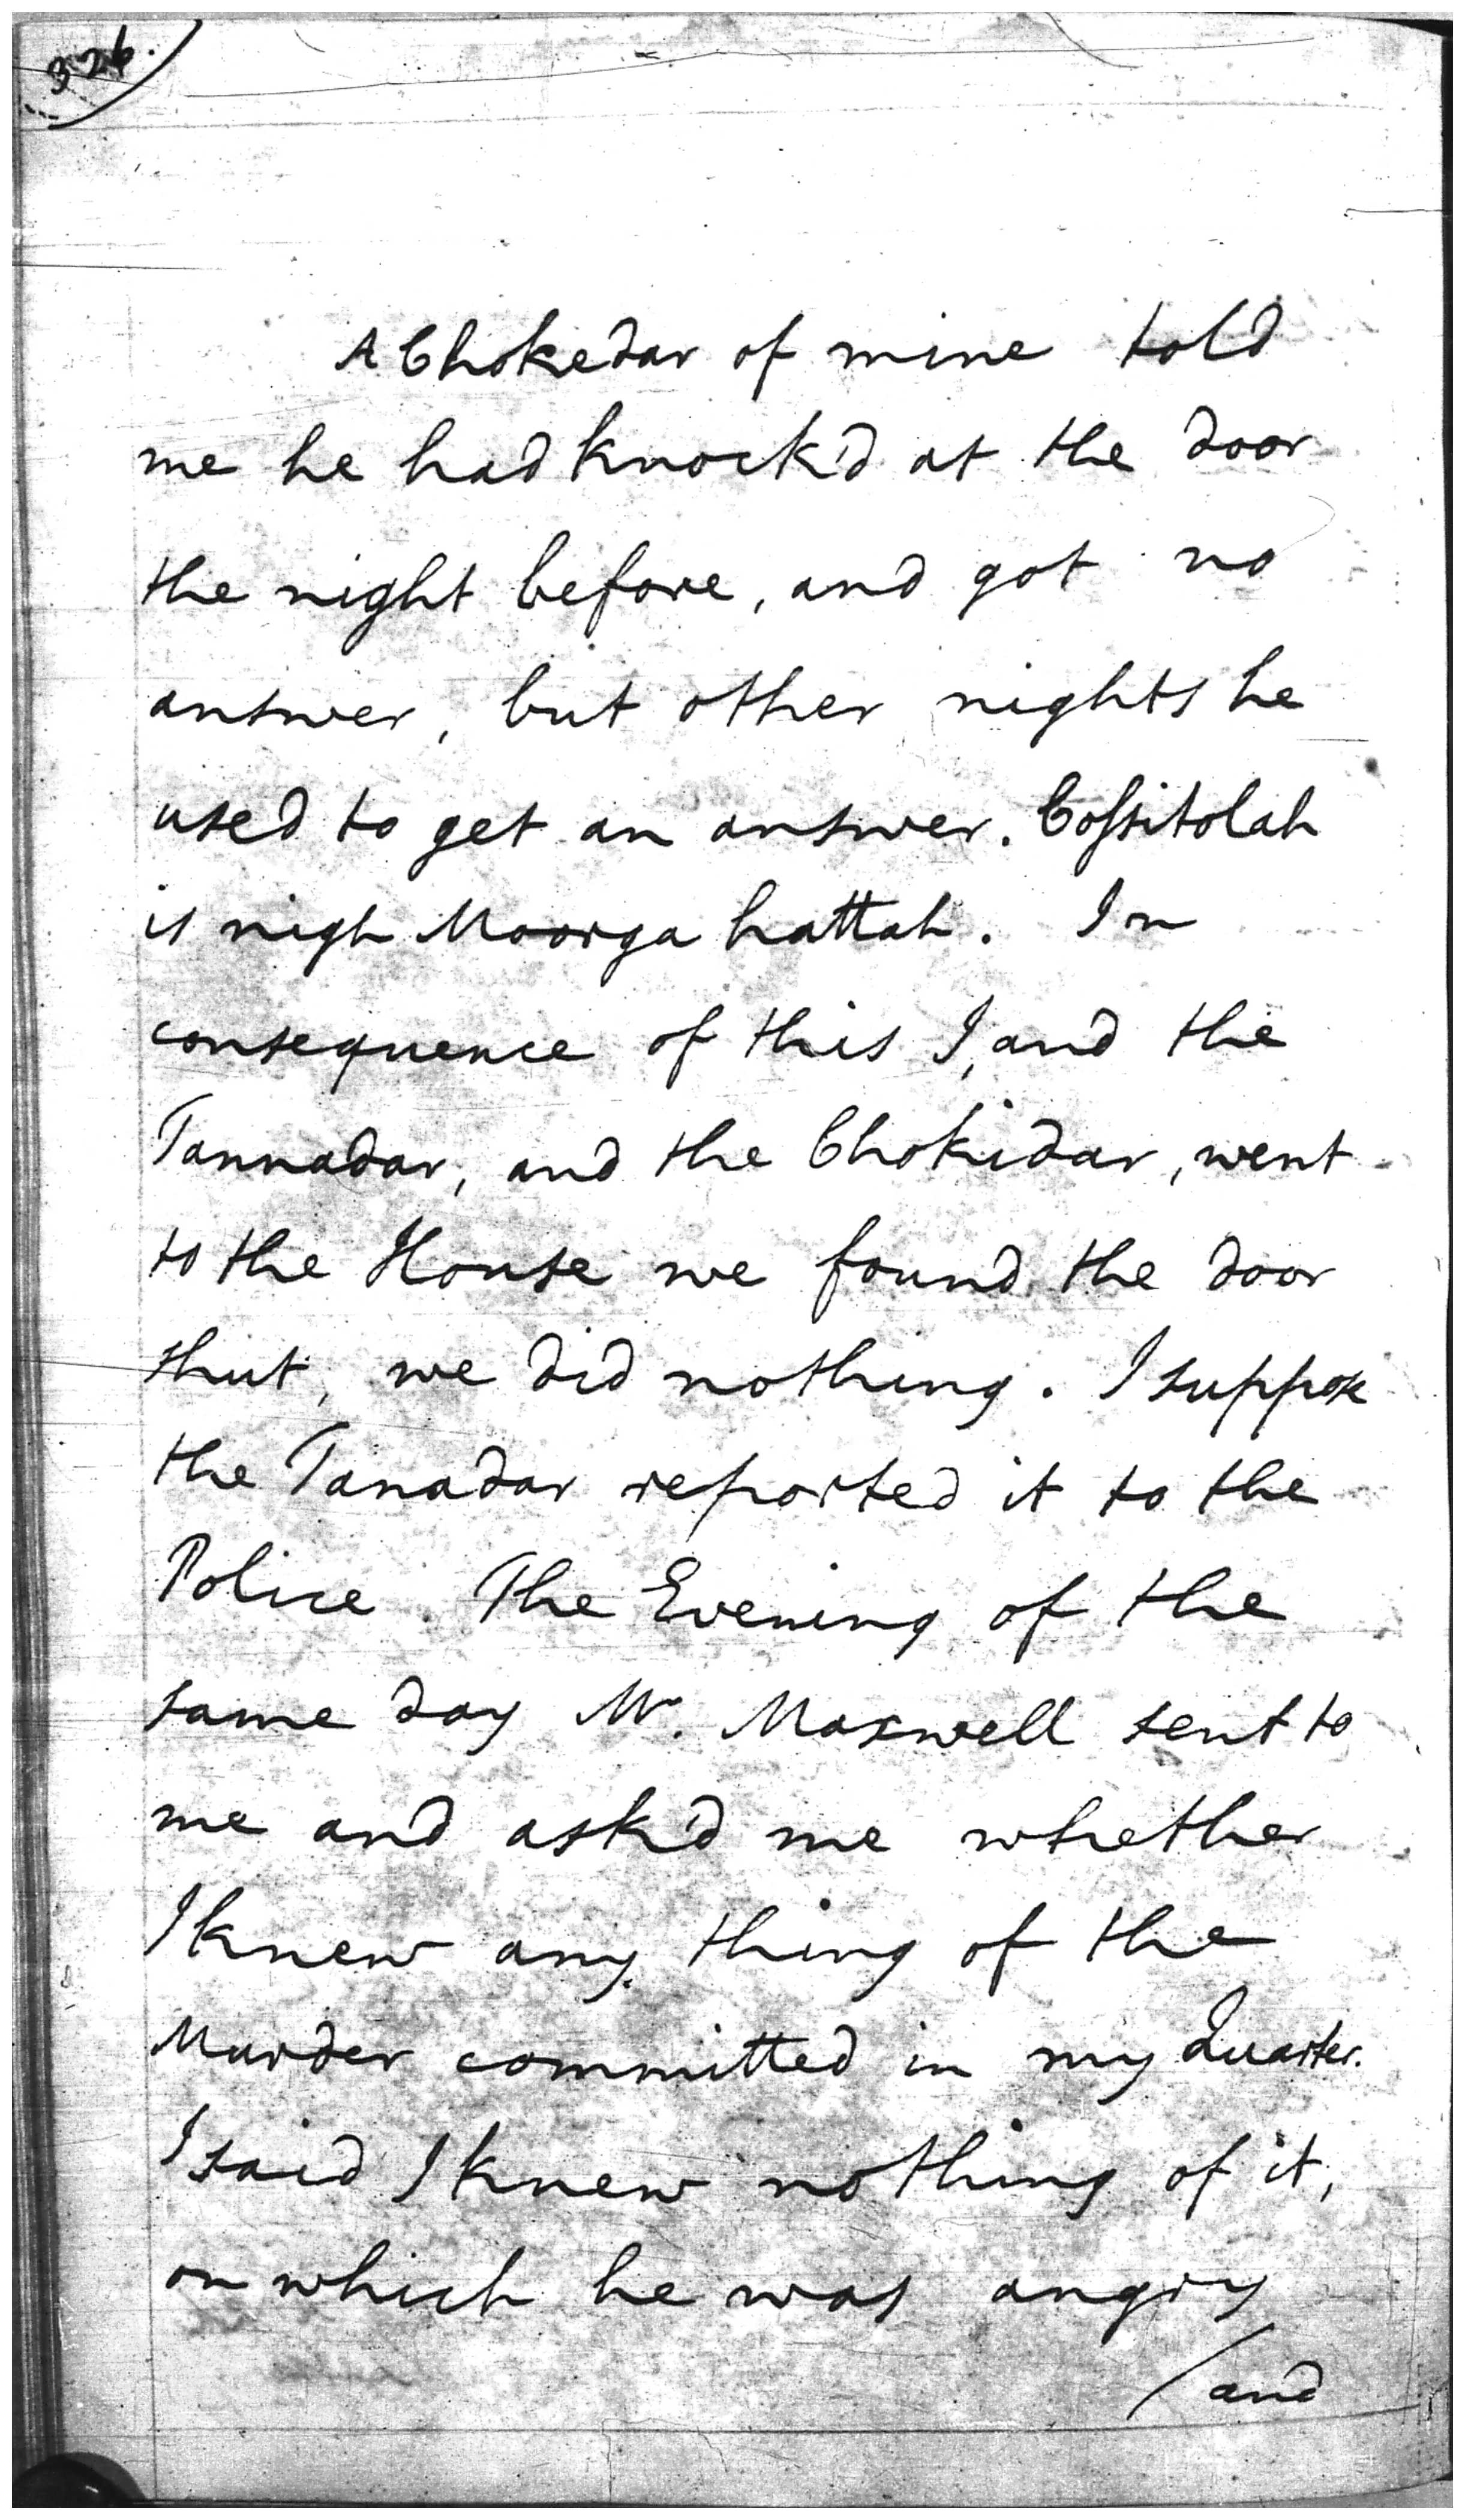 326.
A Chokedar of mine told
me he had knock'd at the door
the night before, and got no
answer, but other nights he
used to get an answer. Cofsitolah
is nigh Moorga hattah. In
consequence of this I, and the
Tannadar, and the Chokidar, went
to the House we found the door
shut, we did nothing. I suppose
the Tanadar reported it to the
Police. The Evening of the
same day Mr. Maxwell sent to
me and ask'd me whether
I knew any thing of the
Murder committed in my Quarter.
I said I knew nothing of it,
on which he was angry
/and